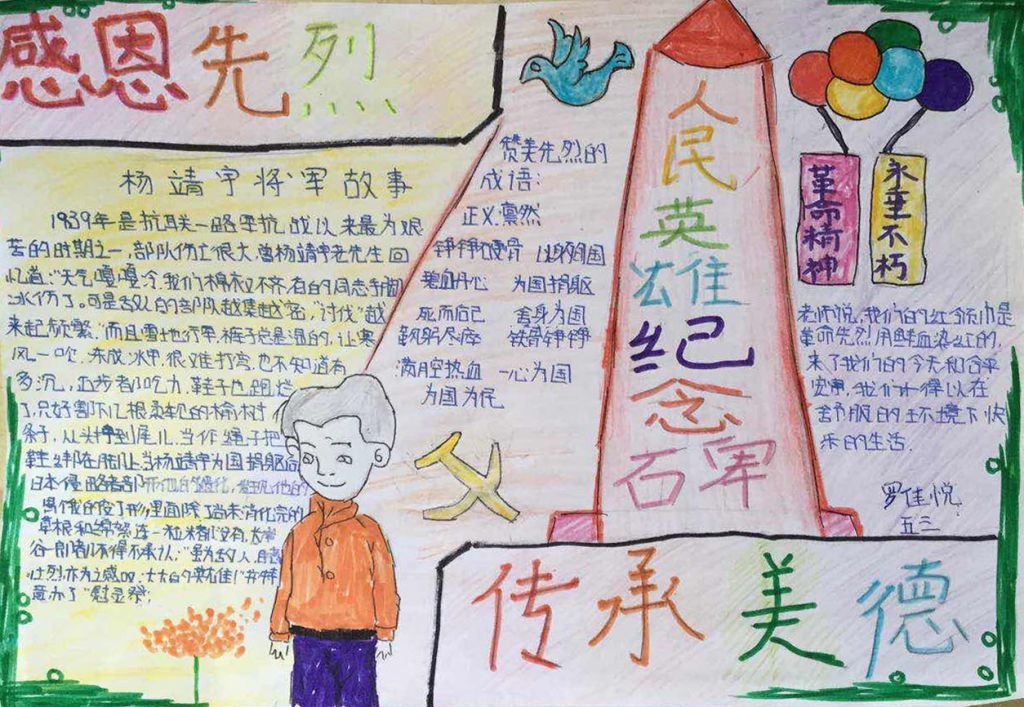 感恩先烈
杨靖宇将军故事
1939年是抗联一路军抗战以来最为艰
苦的时期之一,部队伤亡很大,曾杨靖宇老先生回
忆道:"天气嘎嘎冷,我们棉衣又不齐,有的同志手脚
冰伤了。可是敌人的部队越集越密,"讨伐"越
来起频繁,"而且雪地行军,裤子总是湿的,让寒
风一吹,冻成冰甲,很难打弯,也不知道有
多沉,迈步都吃力,鞋子也跑烂
了,只好割下几根柔软的榆树
条子,从头拧到尾儿,当作绳子把
鞋绑在脚上,当杨靖宇为国捐躯后
日本侵略者部
草根和棉絮连一粒
谷一郎都不得不承认:"虽为敌人,
壮烈亦为之感叹:大大的英雄!"并特
意办了"慰灵祭,
赞美先烈的
成语:
正义凛然
铮铮硬骨 以身殉国
碧血丹心 为国捐躯
死而后已 舍身为国
鞠躬尽瘁 铁骨铮铮
满月空热血 一心为国
为国为民
人民英雄纪念石军
革命精神
永垂不朽
老师说,我们的红领巾是
革命先烈用鲜血染红的,
来了我们的今天和平
安宁,我们才得以在
舒服的环境下快
乐的生活.
罗佳悦
五三
传承美德